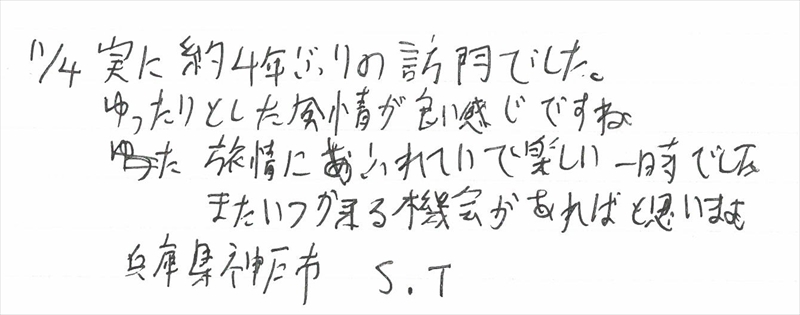 11/4 実に約4年ぶりの訪問でした。
ゆったりとした風情が良い感じですね
旅情にあふれていて楽しい一時でした
またいつか来る機会があればと思います
兵庫県神戸市 S.T